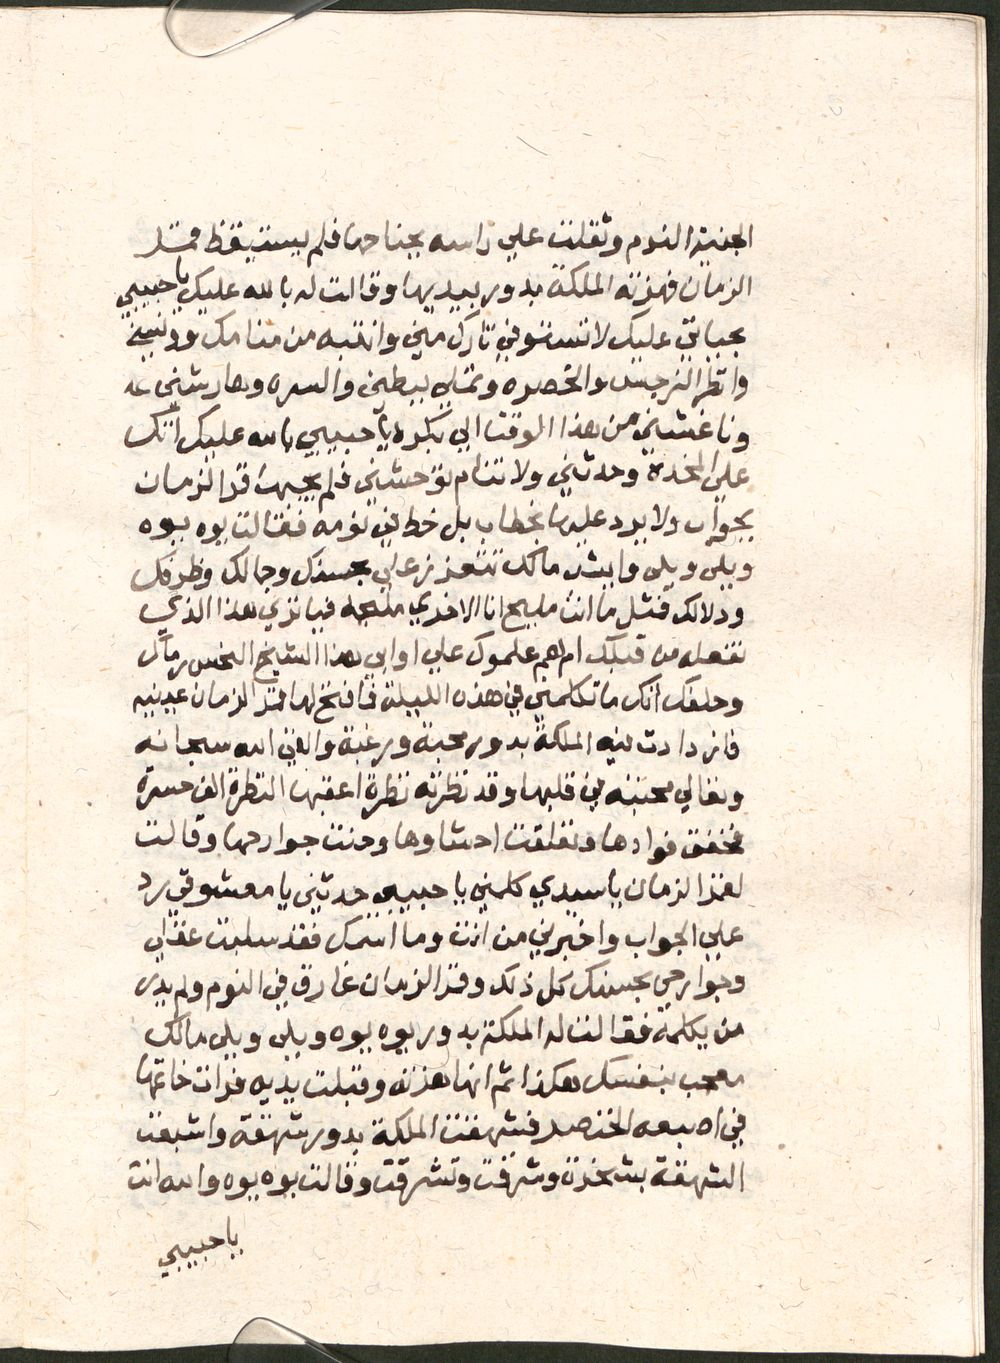 الجنية النوم وثقلت علي راسه بجناحها فلم يستيقظ قمر
الزمان فهزته الملكة بدور بيديها وقالت له بالله عليك يا حبيبي
بحياتي عليك لا تستنوفي تارك مني وانتبه من منامك وونسني
وانظر النرجس والخضره وتملي ببطني والسره وهارشني
وناغشني من هذا الوقت الي بكره يا حبيبي بالله عليك اتك
علي المخدة وحدثني ولا تنام توحشني فلم يجبها قمر الزمان
بجواب ولا يرد عليها بخطاب بل خط في نومه فقالت يوه يوه
ويلي ويلي وايش مالك تتعزز علي بحسنك وجمالك وظرفك
ودلالك فمثل ما انت مليح انا الاخري مليحه فيا تري هذا الذي
تفعله من قبلك ام هم علموك علي او ابي هذا الشيخ النحس رمال
وحلفك انك ما تكلمني في هذه الليلة فافتح لها قمر الزمان عينيه
فازدادت فيه الملكة بدور محبة ورغبة والقي الله سبحانه
وتعالي محبته في قلبها وقد نظرته نظرة اعقبتها النظرة الف حسرة
فخفق فوادها وتقلقت احشاوها وحنت جوارحها وقالت
لقمر الزمان يا سيدي كلمني يا حبيبي حدثني يا معشوقي رد
علي الجواب واخبرني من انت وما اسمك فقد سلبت عقلي
وجوارحي بحسنك كل ذلك وقمر الزمان غارق في النوم ولم يدر
من يكلمه فقالت له الملكة بدور يوه يوه ويلي ويلي مالك
معجب بنفسك هكذا ثم انها هزته وقبلت يديه فرات خاتمها
في اصبعه الخنصر فشهقت الملكة بدور شهقة واتبعت
الشهقة بشخرة وشرقت وتشرقت وقالت يوه يوه والله انت
يا حبيبي